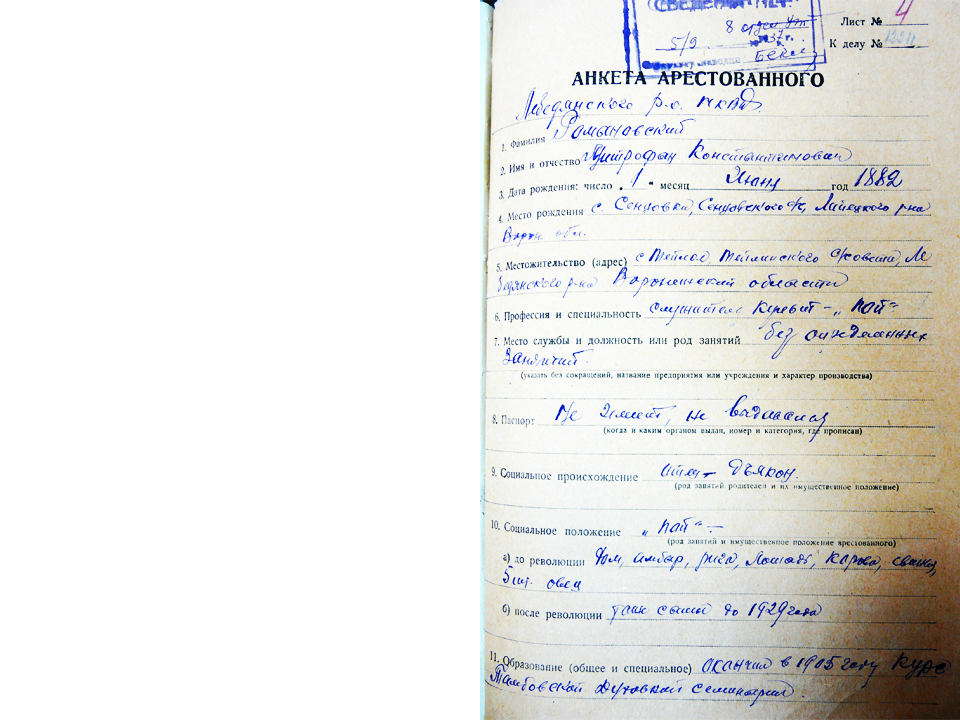 СВЕДЕНИЯ
8 отдел
5/9 37 г.
Лист № 4
К делу №
АНКЕТА АРЕСТОВАННОГО
Лебедянского р.о. НКВД
1. Фамилия Романовский
2. Имя и отчество Митрофан Константинович
3. Дата рождения: число „ 1 " месяц Июня год 1882
4. Место рождения с. Сенцовка, Сенцовского с/с, Липецкого р-на
Ворон обл.
5. Местожительство (адрес) с Теплое, Теплинского с/совета, Ле
бедянского р-на Воронежской области
6. Профессия и специальность служитель культа - „поп"
7. Место службы и должность или род занятий без определенных
занятий.
(указать без сокращений, название предприятия или учреждения и характер производства)
8. Паспорт Не имеет, не выдавался
(когда и каким органом выдан, номер и категория, где прописан)
9. Социальное происхождение отец - дьякон.
(род занятий родителей и их имущественное положение)
10. Социальное положение „поп" -
(род занятий и имущественное положение арестованного)
а) до революции дом, амбар, рига, лошадь, карова, свинья,
5 шт. овец
б) после революции до 1929 года
11. Образование (общее и специальное) окончил в 1905 году курс
Тамбовской Духовной семинарии